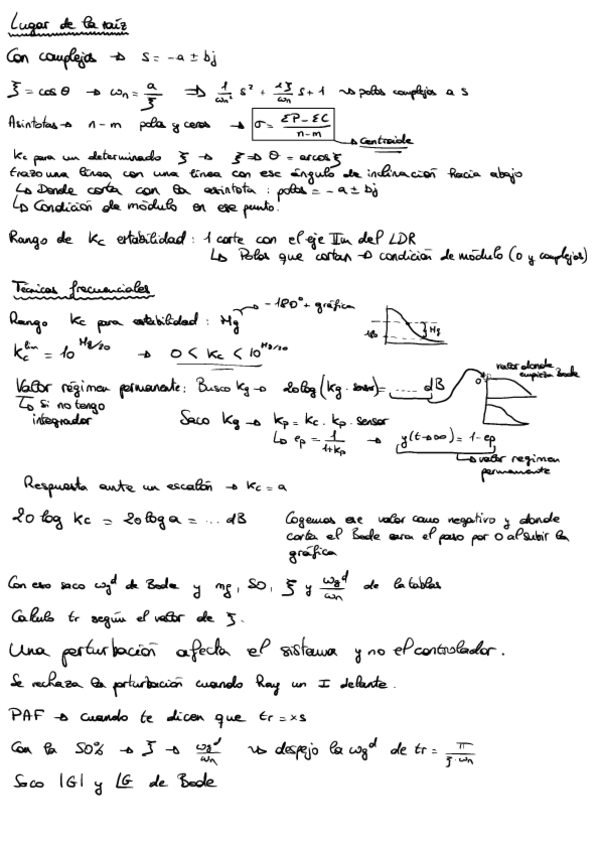 Lugar de la raíz
Con complejos → s = -a ± bj
ξ = cos θ → ωn = a/ξ ⇒ 1/ωn² s² + 2ξ/ωn s + 1 ↝ polos complejos a s
Asíntotas → n-m polos y ceros → σ = (ΣP - ΣC)/(n-m)
→ centroide
Kc para un determinado ξ → ξ ⇒ θ = arcos ξ
trazo una línea con una línea con ese ángulo de inclinación hacia abajo
↳ Donde corta con la asíntota : polos = -a ± bj
↳ Condición de módulo en ese punto.
Rango de Kc estabilidad : 1 corte con el eje Im del LDR
↳ Polos que cortan → condición de módulo (0 y complejos)
Técnicas frecuenciales
→ -180° + gráfica
Rango Kc para estabilidad : Mg
180
Mg
Kc lim = 10^Mg/20 → 0 < Kc < 10^Mg/20
valor donde empieza Bode
Valor régimen permanente : Busco Kg → 20log (Kg · sensor) = ..... dB
0
↳ si no tengo integrador
Saco Kg → Kp = Kc · Kp · sensor
↳ ep = 1/(1+Kp) → y(t→∞) = 1 - ep
→ valor regimen permanente
Respuesta ante un escalón → Kc = a
20 log Kc = 20 log a = ... dB
Cogemos ese valor como negativo y donde
corta el Bode sera el paso por 0 al subir la
gráfica
Con eso saco ωg^d de Bode y mf, SO, ξ y ωg^d/ωn de la tablas
Calculo tr según el valor de ξ.
Una perturbación afecta el sistema y no el controlador.
Se rechaza la perturbación cuando hay un I delante.
PAF → cuando te dicen que tr = xs
Con la SO% → ξ → ωg^d/ωn ↝ despejo la ωg^d de tr = π/(ξ·ωn)
Saco |G| y ∠G de Bode